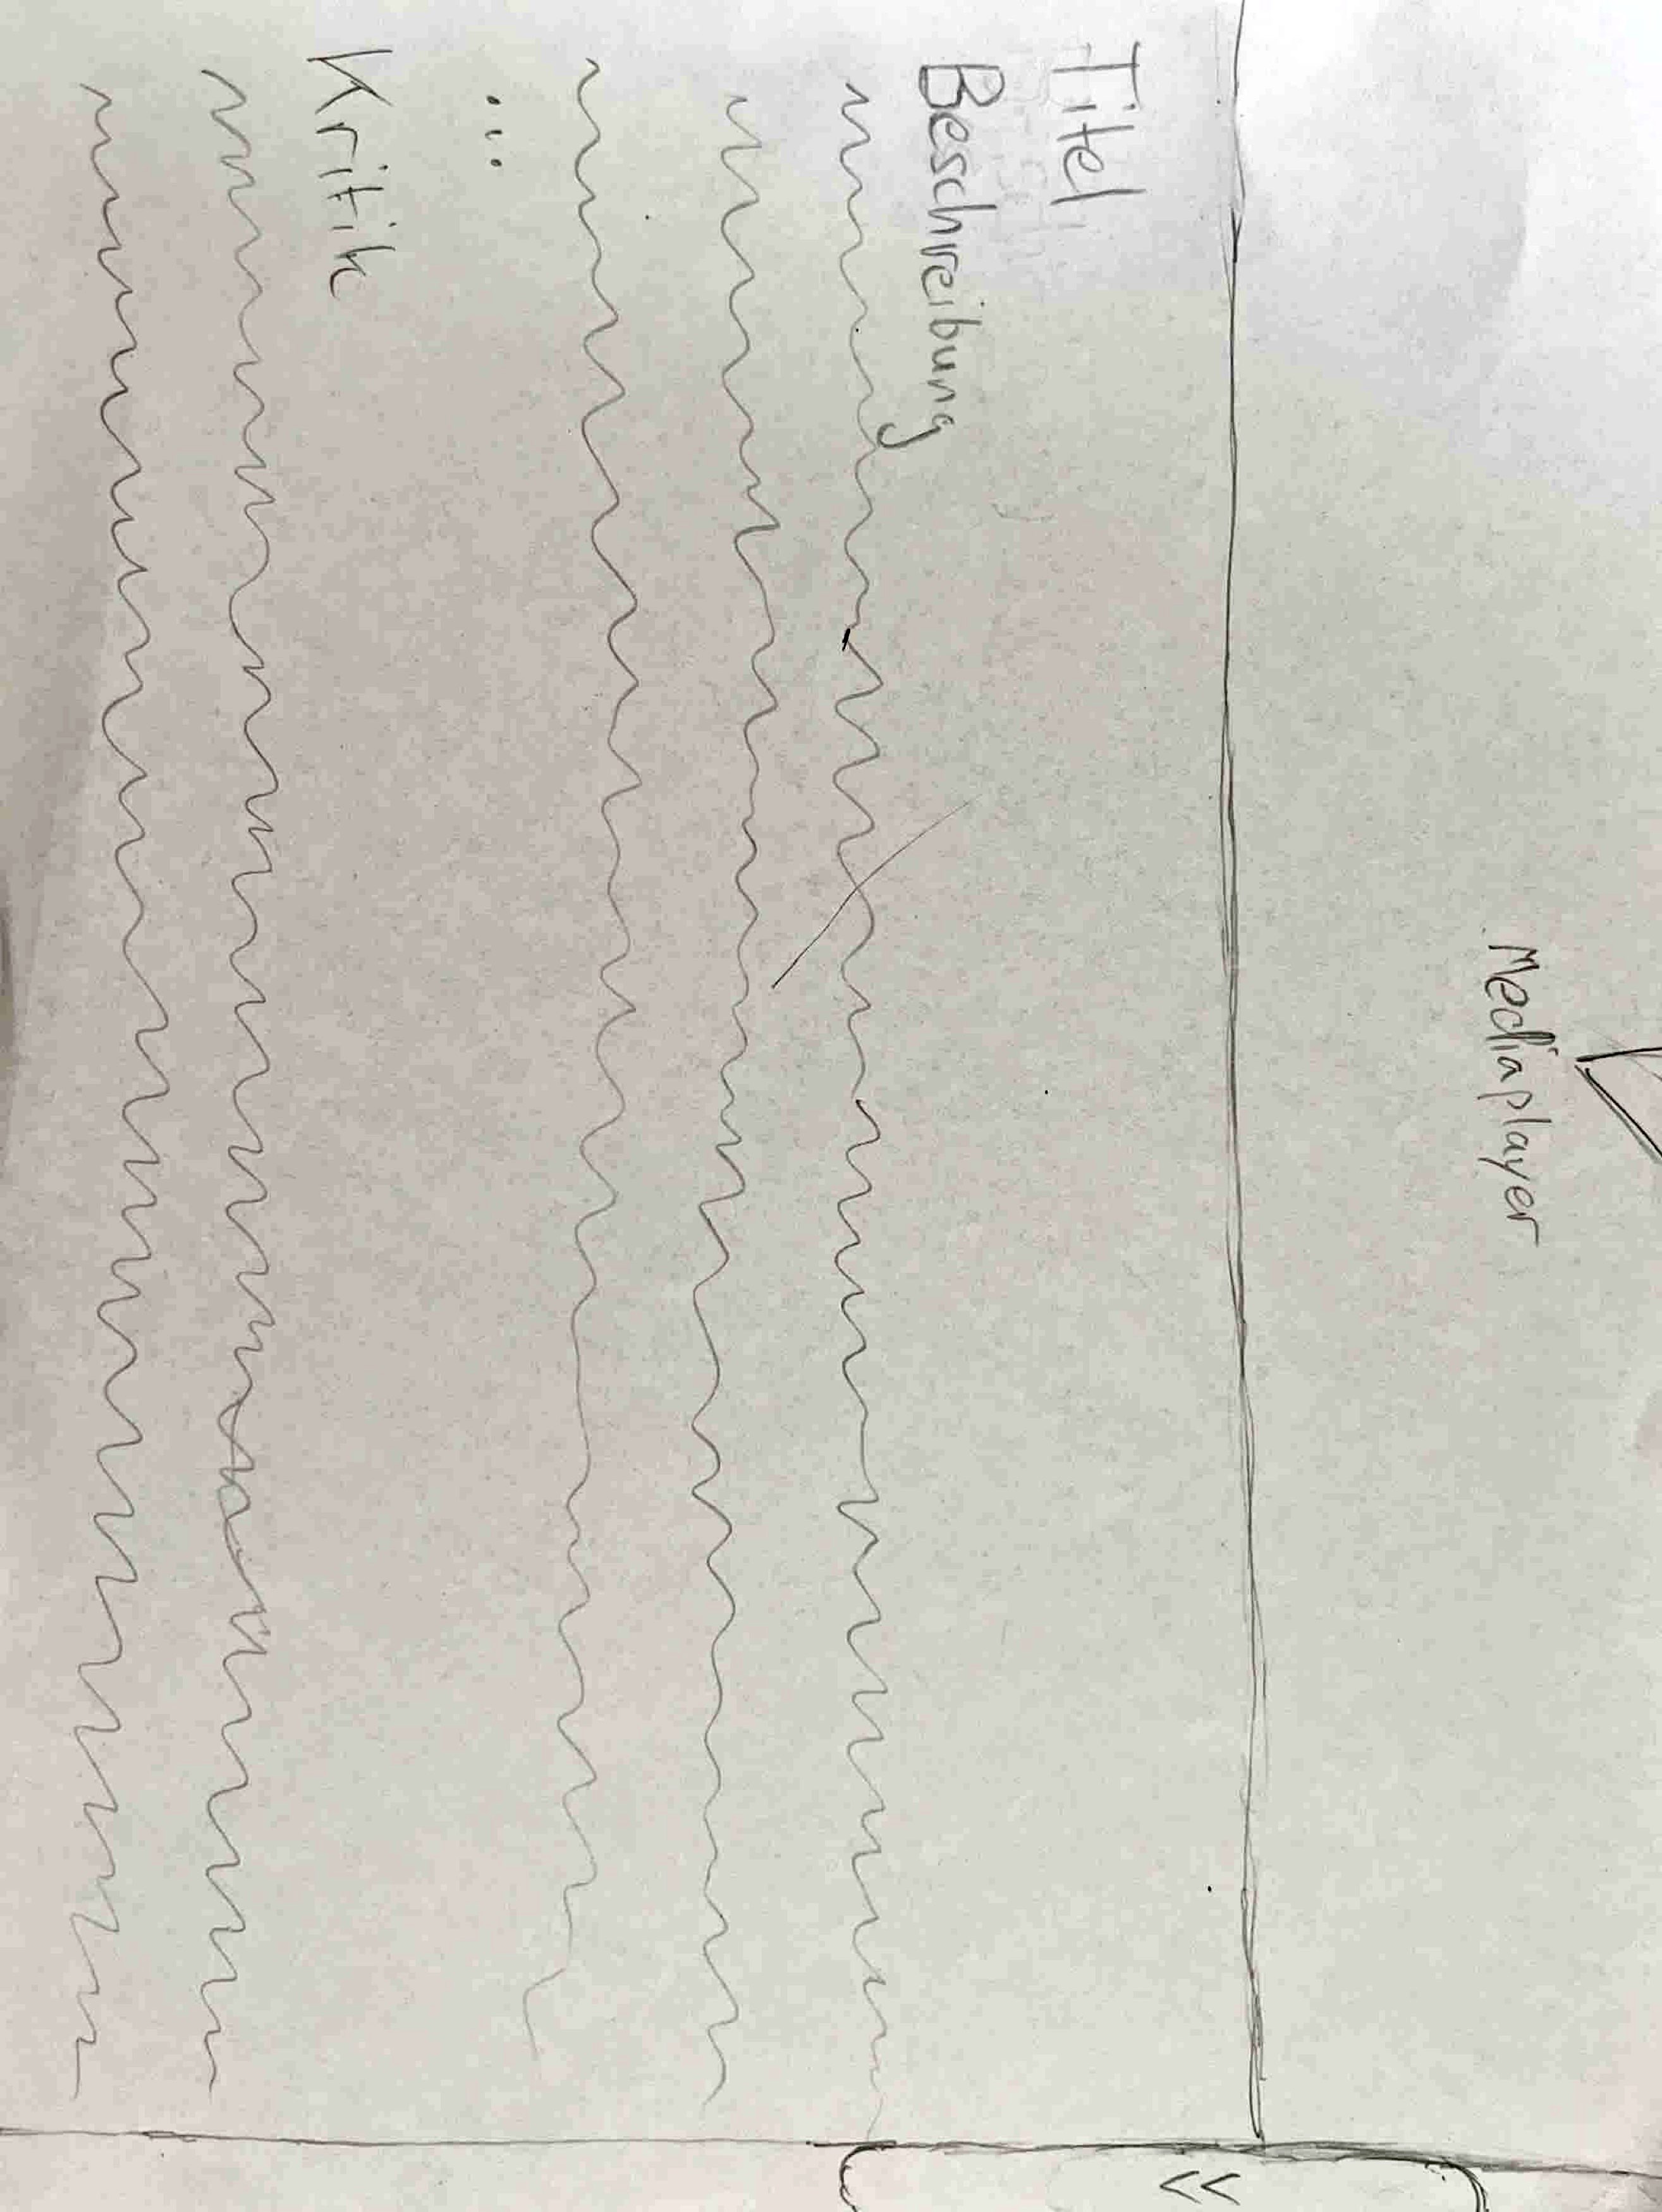 Mediaplayer
Titel
Beschreibung
...
Kritik
>>